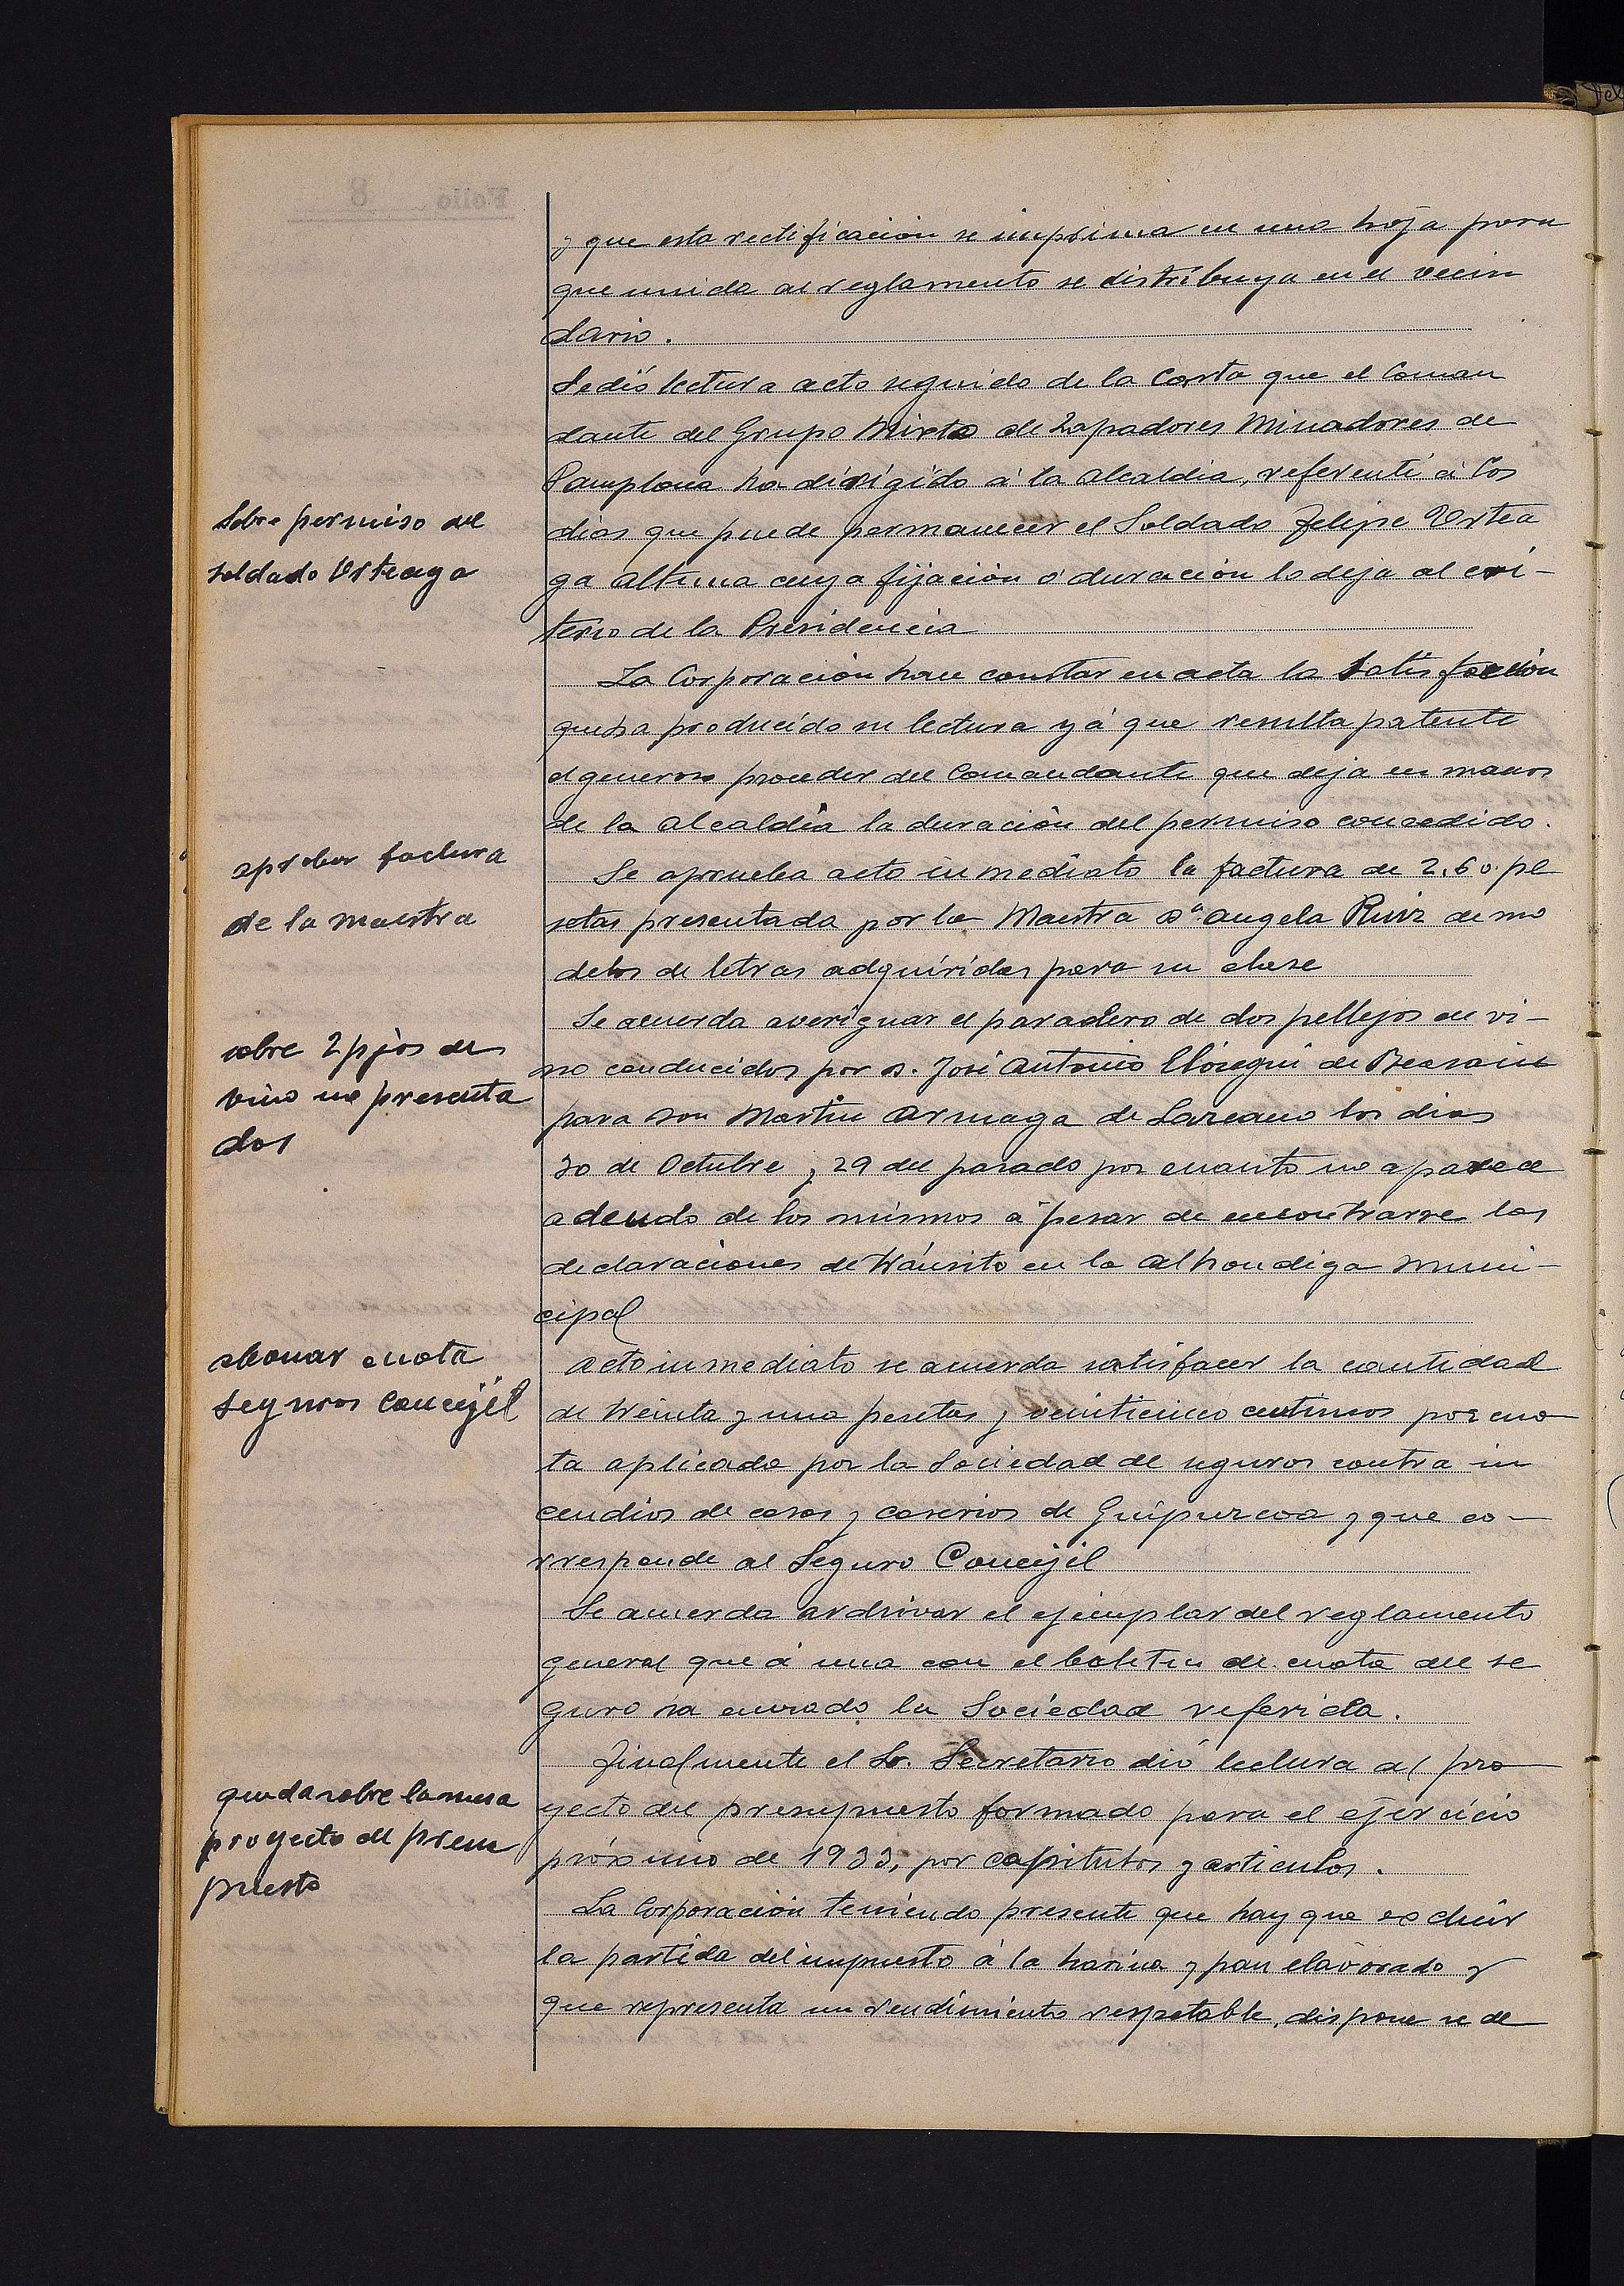 y que esta rectificación se imprima en una hoja para
que unida al reglamento se distribuya en el vecin
dario.
Se dió lectura acto seguido de la Carta que el Coman
dante del Grupo Mixto de Zapadores Minadores de
Pamplona ha dirigido á la alcaldia, referente á los
Sobre permiso del
soldado Urteaga
dias que puede permanecer el Soldado Felipe Urtea
ga Altuna cuya fijación ó duración lo deja al cri-
terio de la Presidencia
La Corporación hace constar en acta la Satisfacción
que ha producido su lectura yá que resulta patente
el generoso proceder del Comandante que deja en manos
de la alcaldia la duración del permiso concedido.
aprobar factura
de la maestra
Se aprueba acto inmediato la factura de 2,60 pe
setas presentada por la Maestra Dª. angela Ruiz de mo
delos de letras adquiridas para su clase
sobre 2 pjos de
vino no presenta
dos
Se acuerda averiguar el paradero de dos pellejos de vi-
no conducidos por D. José Antonio de Beasain
para Don Martin de Lazcano los dias
30 de Octubre y 29 del pasado por cuanto no aparece
adeudo de los mismos á pesar de encontrarse las
declaraciones de tránsito en la Alhondiga muni-
cipal
abonar cuota
seguros Concejil
acto inmediato se acuerda satisfacer la cantidad
de treinta y una pesetas y veinticinco centimos por cuo
ta aplicada por la Sociedad de seguros contra in
cendios de casas y caserios de Guipuzcoa y que co-
rresponde al Seguro Concejil
Se acuerda archivar el ejemplar del reglamento
general que á una con el boletin de cuota del se
guro ha enviado la Sociedad referida.
queda sobre la mesa
proyecto de presu
puesto
Finalmente el Sr. Secretario dió lectura al pro
yecto del presupuesto formado para el ejercicio
próximo de 1933, por capitulos y articulos.
La Corporación teniendo presente que hay que excluir
la partida del impuesto á la harina y pan elavorado y
que representa un rendimiento respetable, dispone se de